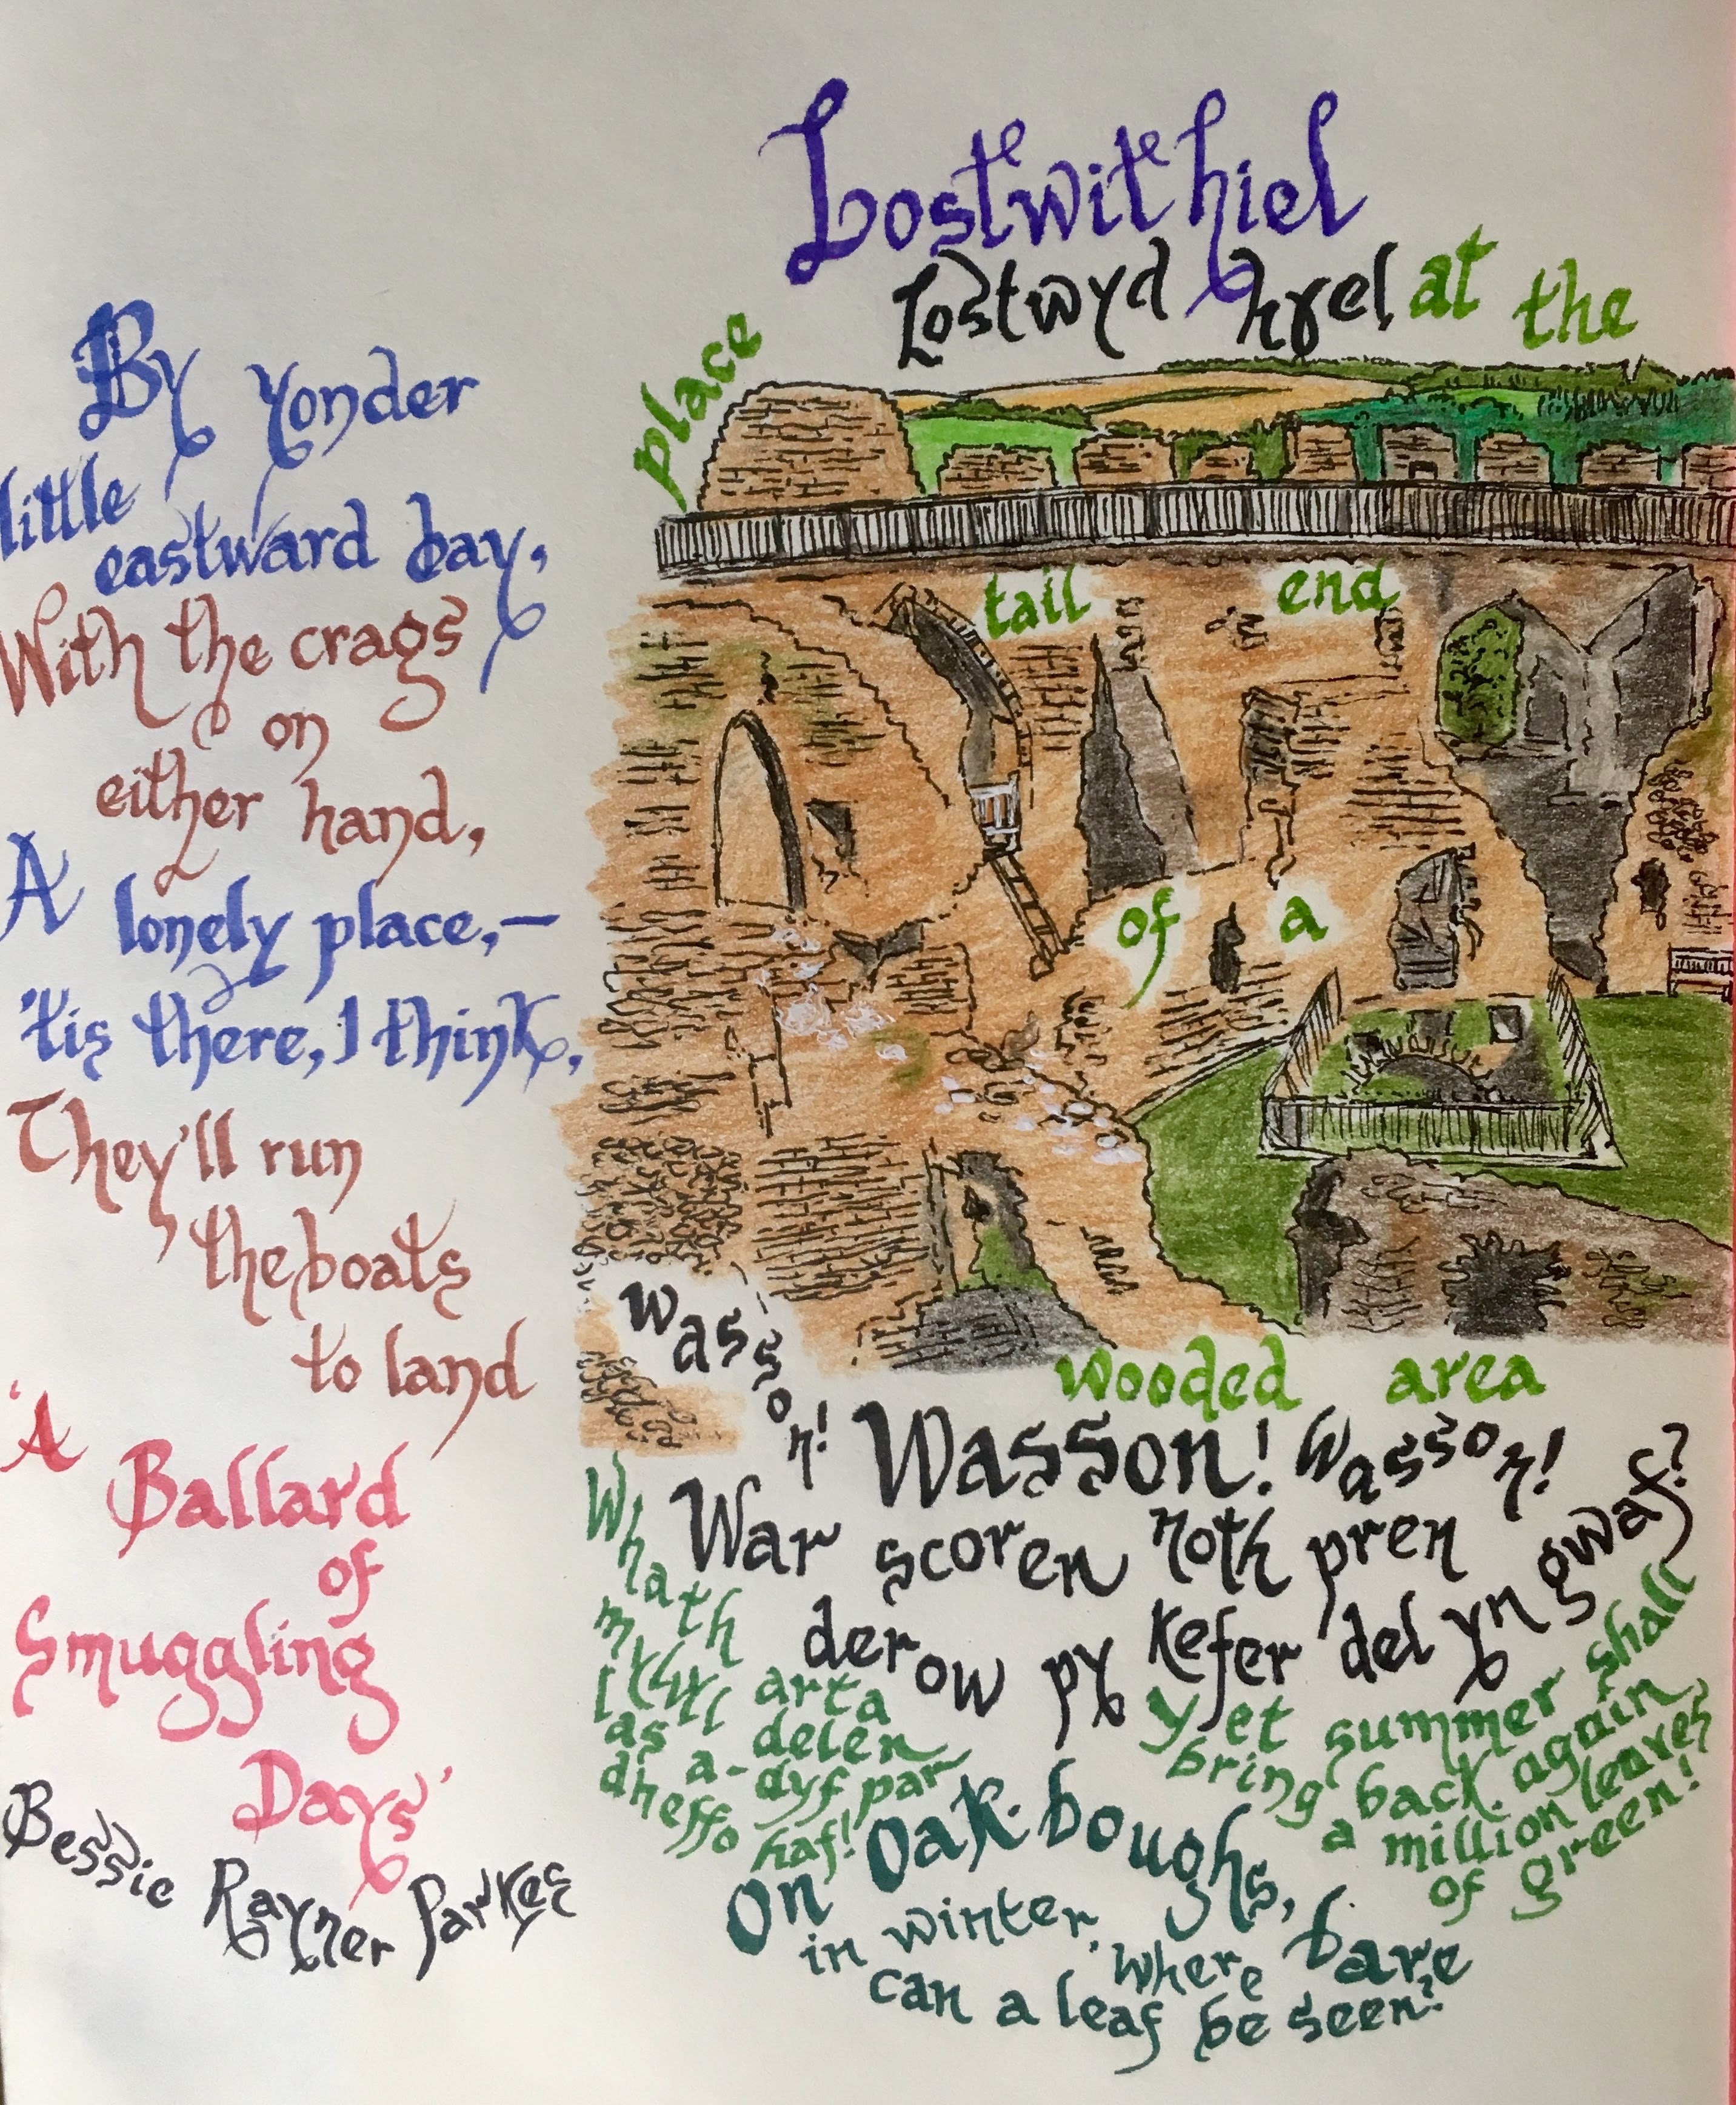 Lostwithiel
Lostwydhyel at the
place
tail end
of a
wooded area
By yonder
little
eastward bay,
With the crags
on
either hand,
A lonely place,—
'tis there, I think,
They'll run
the boats
to land
'A
Ballard
of
Smuggling
Days'
Bessie Rayner Parkes
Wasson! Wasson! Wasson!
War scoren noth pren
derow py kefer del yn gwaf?
Whath
mylyl arta
as a-delen
dheffo dyf par
haf!
Yet summer shall
bring back again
a million leaves
of green!
On Oak boughs,
in winter, bare
where
can a leaf be seen?